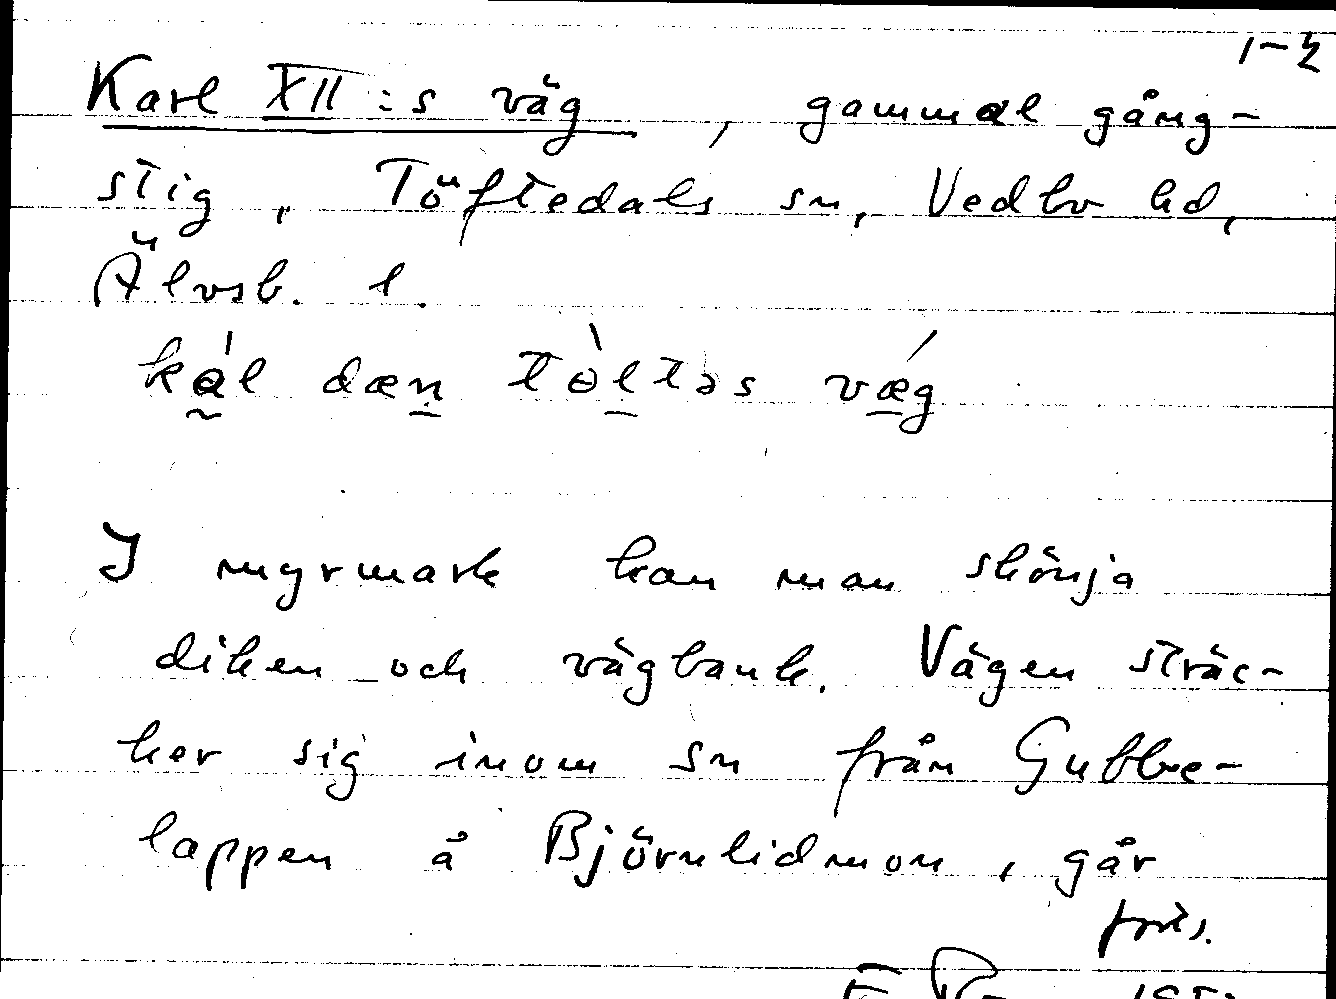 1-2
Karl XII:s väg, gammal gång-
stig, Töftedals sn, Vedbo hd,
Älvsb. l.
kál dæn tòltəs vǽg
I myrmark kan man skönja
diken och vägbank. Vägen sträc-
ker sig inom sn från Gubbe-
lappen å Björnlidmon, går
forts.